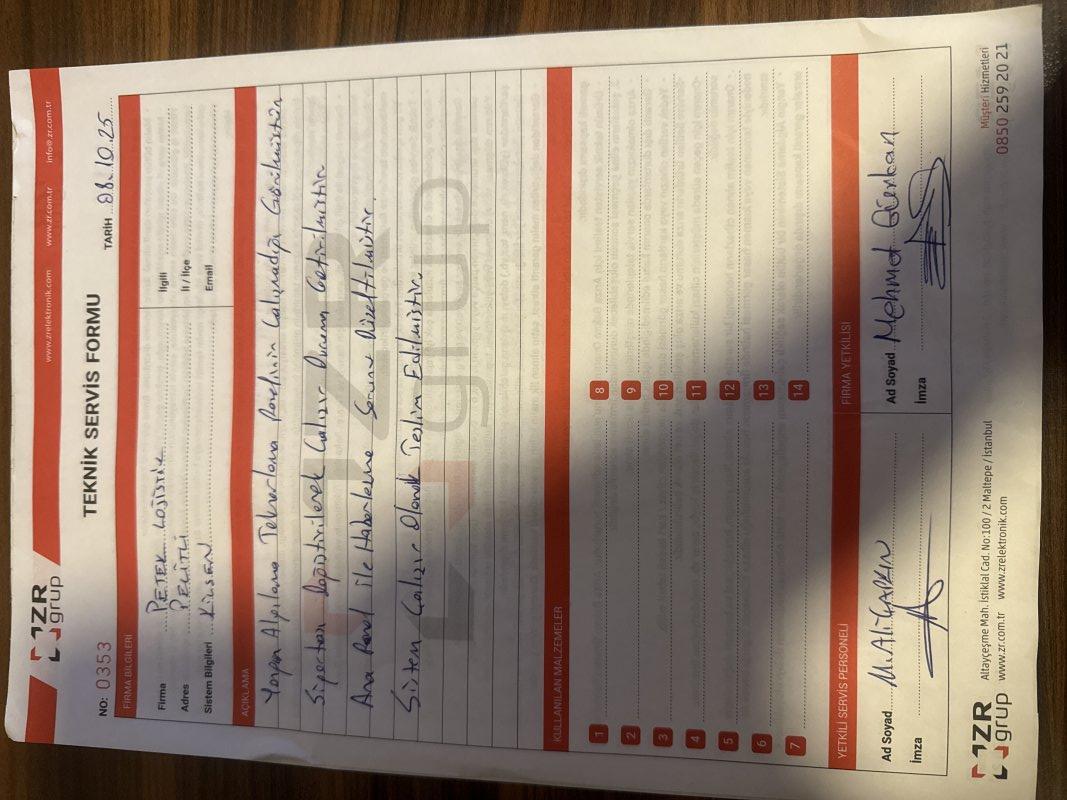 ZR grup
www.zrelektronik.com www.zr.com.tr info@zr.com.tr
NO: 0353
TEKNİK SERVİS FORMU
TARİH 08.10.25
FİRMA BİLGİLERİ
Firma PETEK LOJİSTİK
Adres PELİTLİ
Sistem Bilgileri KİLSEN
İlgili
İl / İlçe
Email
AÇIKLAMA
Yangın Algılama Tekrarlama Panelinin Çalışmadığı Görülmüştür
Sigortası Değiştirilerek Çalışır Duruma Getirilmiştir
Ana Panel ile Haberleşme Sorunu Düzeltilmiştir.
Sistem Çalışır Olarak Teslim Edilmiştir.
ZR grup
KULLANILAN MALZEMELER
1 8
2 9
3 10
4 11
5 12
6 13
7 14
YETKİLİ SERVİS PERSONELİ
Ad Soyad M. Ali ÇAPKIN
İmza
FİRMA YETKİLİSİ
Ad Soyad Mehmet Gürkan
İmza
ZR grup
Altayçeşme Mah. İstiklal Cad. No:100 / 2 Maltepe / İstanbul
www.zr.com.tr www.zrelektronik.com
Müşteri Hizmetleri
0850 259 20 21